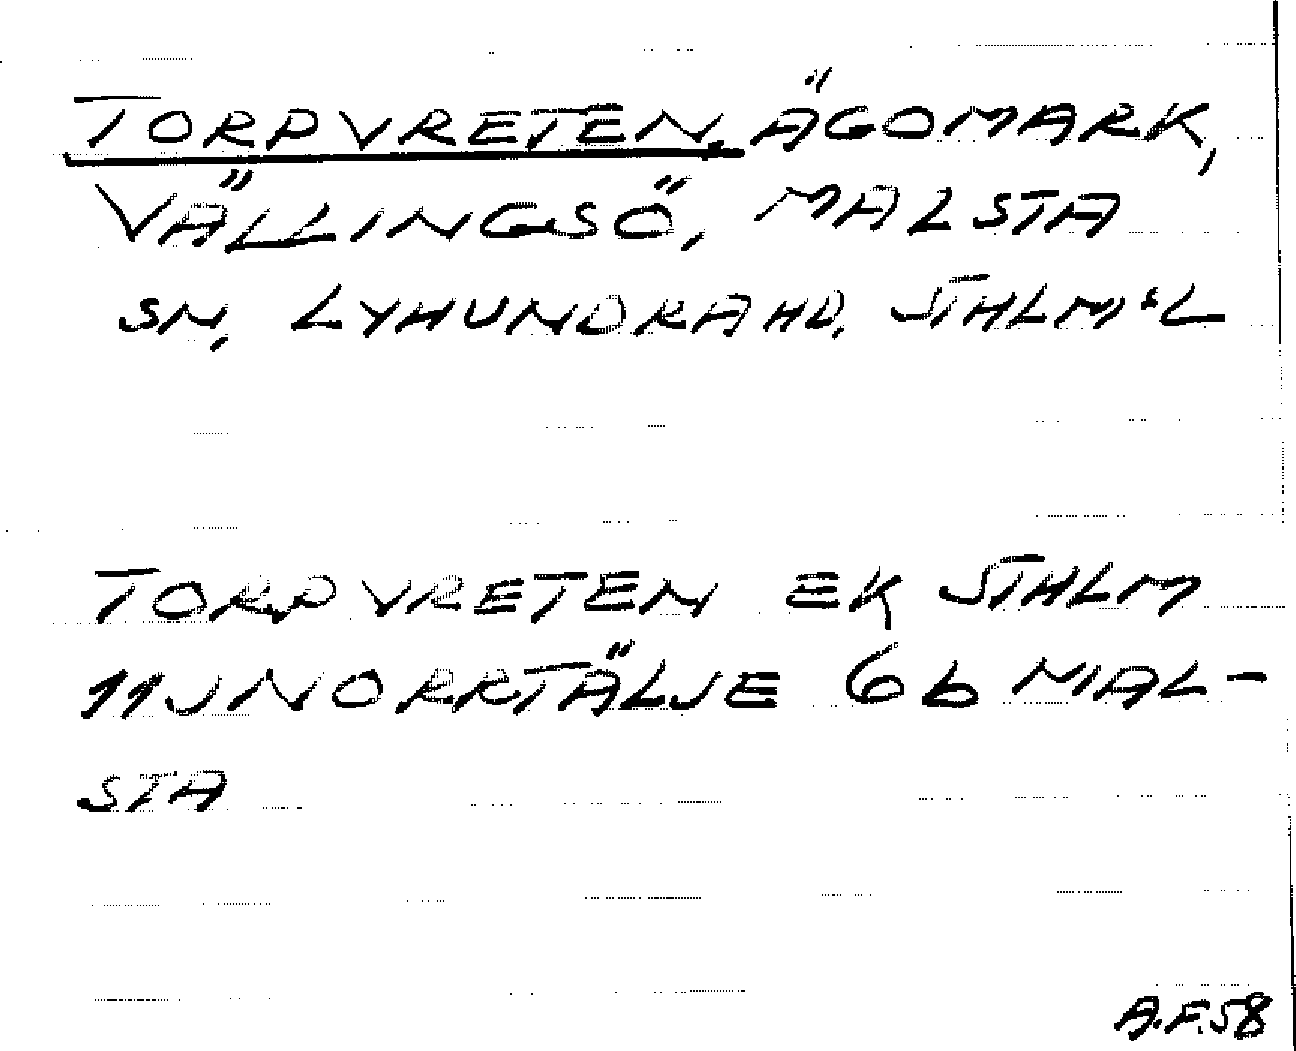 TORPVRETEN, ÄGOMARK,
VÄLLINGSÖ, MALSTA
SN, LYHUNDRA HD, STHLM'S L
TORPVRETEN EK STHLM
11J NORRTÄLJE 6b MAL-
STA
A.F.58